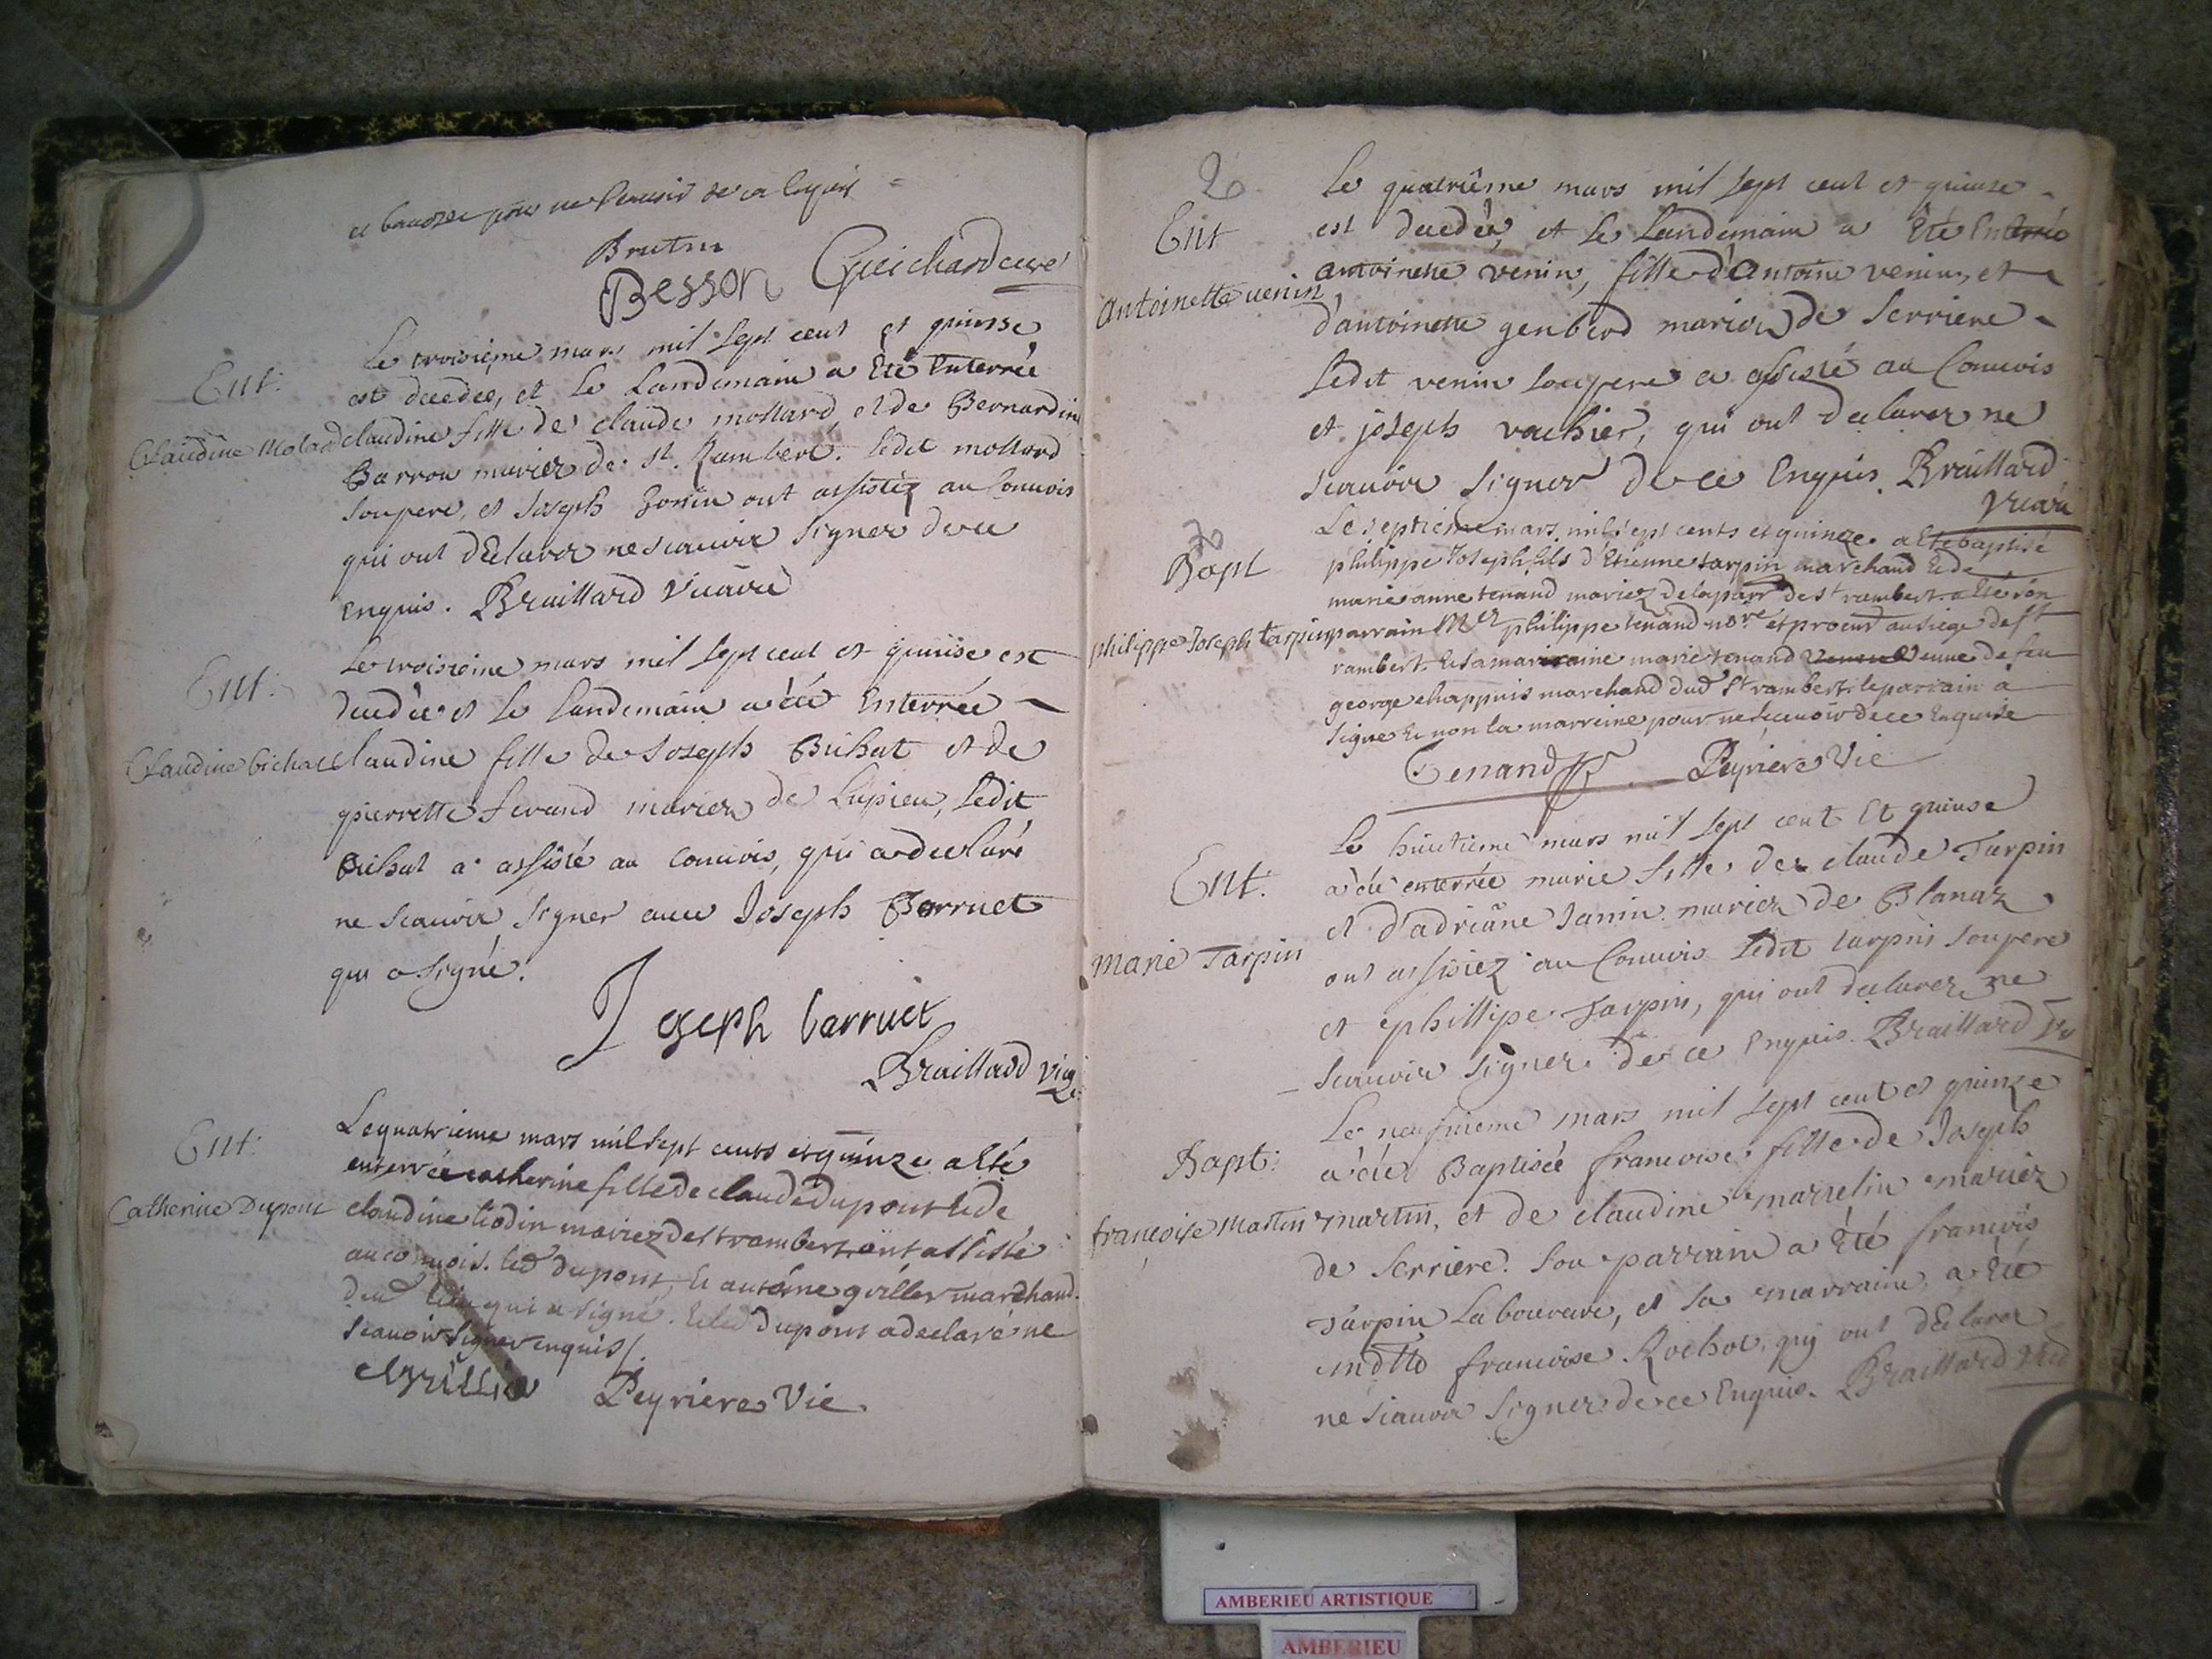 Brutin
Besson Guichard curé
Ent:
Claudine Molard
Le troisième mars mil sept cent et quinse
est decedée, et le Landemain a Eté Enterrée
claudine fille de claude mollard, et de Bernardine
Barrou mariez de St. Rambert. ledit mollard
son pere, et Joseph Jonin ont assistéz au Convois
qui ont dEclarer ne scauoir signer de ce
enquis. Braillard Vicaire
Ent:
Claudine bichat
Le troisieme mars mil sept cent et quinse est
decedée et le landemain a été Enterrée
claudine fille de Joseph Bichat et de
pierrette ferand mariez de Lupieu, ledit
Bichat a assisté au convois, qui a declaré
ne scauoir signer auec Joseph Barruet
qui a signé.
Joseph barruet
Braillard vic
Ent:
Catherine Dupont
Le quatrieme mars mil sept cents et quinze a Eté
enterrée catherine fille de claude dupont et de
claudine liodin mariez de st rambert ont assisté
au conuois. led dupont, Et antoine grillet marchand
dud lieu qui a signé. Et led dupont a declaré ne
scauoir signer enquis/.
Peyriere Vic
Ent
Antoinette venin
Le quatriême mars mil sept cent et quinse
est decedée, et le Landemain a Eté Enterrée
antoinette venin, fille d'antoine venin, et
d'antoinette genberd mariez de Serriere
ledit venin son pere a assisté au Conuois
et joseph vachier, qui ont declarer ne
scauoir signer de ce Enquis. Braillard
Vicaire
Bapt
philippe Joseph tarpin
Le septieme mars mil sept cents et quinze a Eté baptisé
philippe Joseph fils d'Etienne tarpin marchand Et de
marie anne tenand mariez de la parr de st rambert a Eté son
parrain Mer philippe tenand nore et procur au siege de st
rambert Et sa marraine marie tenand veuve de feu
george chappuis marchand dud st rambert le parrain a
signe Et non la marreine pour ne scauoir de ce Enquise
Tenand Peyriere Vic
Ent:
Marie Tarpin
Le huictieme mars mil sept cent Et quinse
a été enterrée marie fille de claude Tarpin
et d'adriâne Janin mariez de Blanaz
ont assistez au Conuois ledit tarpin son pere
et phillipe Tarpin, qui ont declarez ne
scauoir signer de ce Enquis. Braillard Vic
Bapt:
françoise Martin
Le neufuieme mars mil sept cent et quinze
a été Baptisée francoise fille de Joseph
martin, et de claudine marrelin mariez
de Serriere. Son parrain a Eté francois
Tarpin Laboureur, et sa marraine a Eté
francoise Rochot, qui ont dEclarer
ne sçauoir signer de ce Enquis. Braillard Vic
AMBERIEU ARTISTIQUE
AMBERIEU